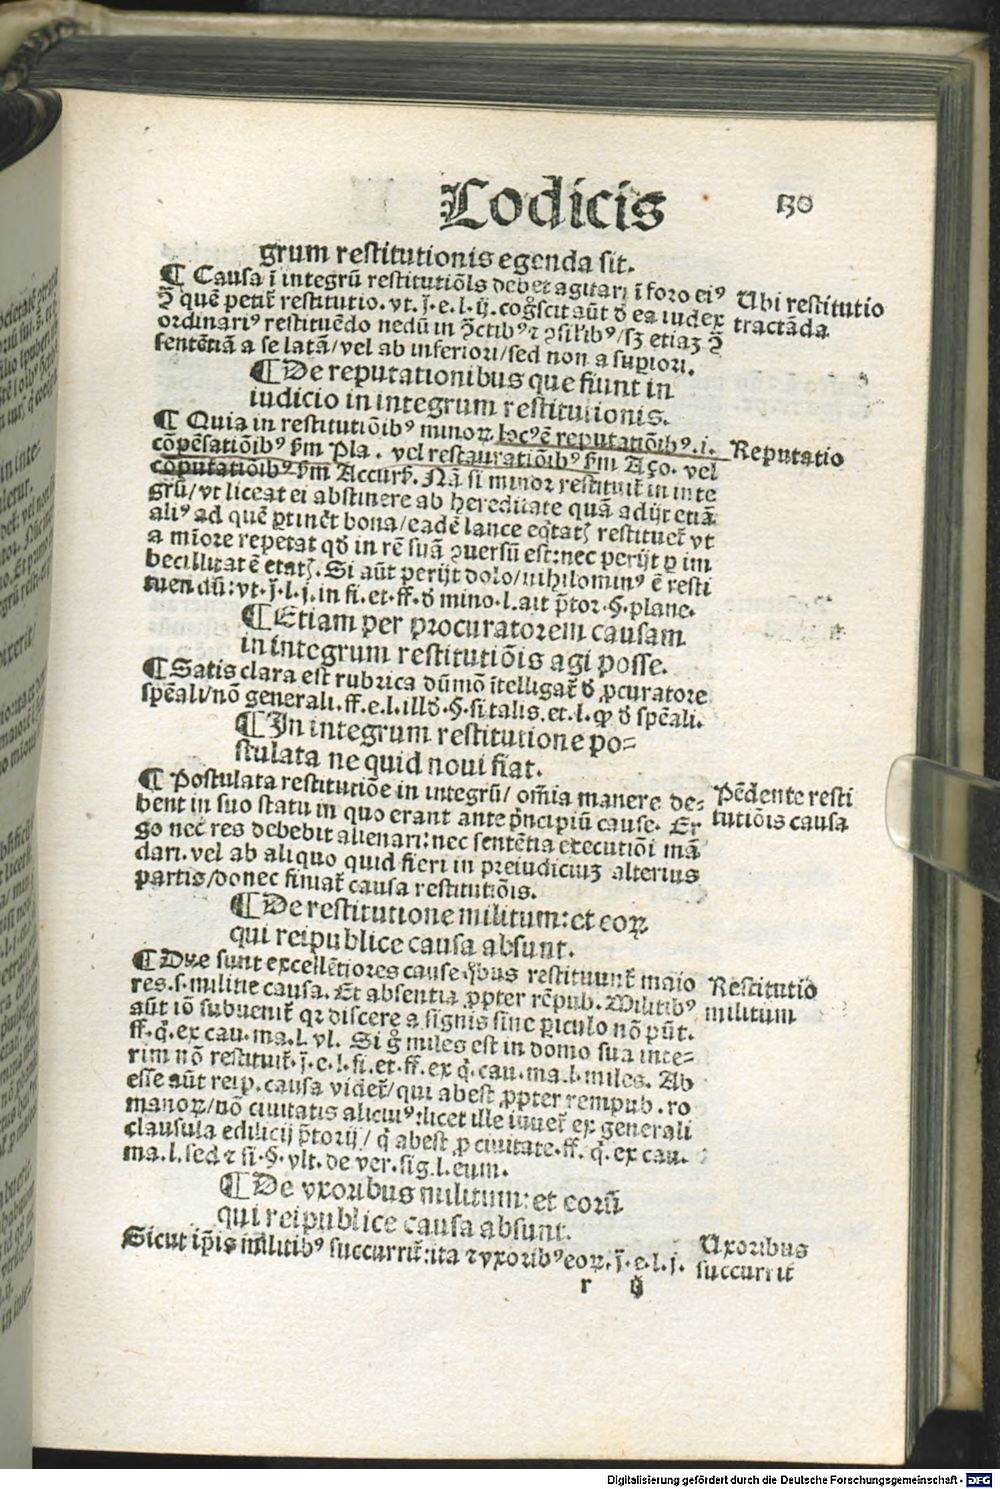 Codicis 130
grum restitutionis egenda sit.
¶ Causa ĩ integrũ restitutiõis debet agitari ĩ foro eiꝰ
ꝯ̃ quẽ petit̃ restitutio. vt. j̃. e. l. ij. cog̃scit aũt đ ea iudex
ordinariꝰ restituẽdo nedũ in ꝯ̃ctibꝰ ⁊ ꝯsilibꝰ/sꝫ etiaꝫ ꝯ̃
sentẽtiã a se latã/vel ab inferiori/sed non a supiori.
Ubi restitutio
tractãda
¶ De reputationibus que fiunt in
iudicio in integrum restitutionis.
¶ Quia in restitutiõibꝰ minoꝝ locꝰ ẽ reputatiõibꝰ. i.
cõpẽsatiõibꝰ fm Pla. vel restauratiõibꝰ fm Aço. vel
cõputatiõibꝰ fm Accurs̃. Nã si minor restituit̃ in inte
grũ/vt liceat ei abstinere ab hereditate quã adijt etiã
aliꝰ ad quẽ ꝑtinẽt bona/eadẽ lance eq̃tatꝭ restituet̃ vt
a miõre repetat qđ in rẽ suã ꝯuersũ est: nec perijt ꝑ im
becillitatẽ etatꝭ. Si aũt perijt dolo/nihilominꝰ ẽ resti
tuendũ: vt. j̃. l. j. in fi. et. ff. đ mino. l. ait p̃tor. §. plane.
Reputatio
¶ Etiam per procuratorem causam
in integrum restitutiõis agi posse.
¶ Satis clara est rubrica dũmõ ĩtelligat̃ đ ꝓcuratore
spẽali/nõ generali. ff. e. l. illđ. §. si talis. et. l. ꝙ đ spẽali.
¶ In integrum restitutione po=
stulata ne quid noui fiat.
¶ Postulata restitutiõe in integrũ/ om̃ia manere de=
bent in suo statu in quo erant ante p̃ncipiũ cause. Er
go nec res debebit alienari: nec sentẽtia executiõi mã
dari. vel ab aliquo quid fieri in preiudiciuꝫ alterius
partis/donec finiat̃ causa restitutiõis.
Pẽdente resti
tutiõis causa
¶ De restitutione militum: et eoꝝ
qui reipublice causa absunt.
¶ Due sunt excellẽtiores cause q̃bus restituunt̃ maio
res. s. militie causa. Et absentia ꝓpter rẽpub. Militibꝰ
aũt iõ subuenit̃ qꝛ discere a signis sine ꝑiculo nõ pñt.
ff. q̃. ex cau. ma. l. vl. Si g̃ miles est in domo sua inte=
rim nõ restituit̃. j̃. e. l. fi. et. ff. ex q̃. cau. ma. l. miles. Ab
esse aũt reip. causa videt̃/qui abest ꝓpter rempub. ro
manoꝝ/nõ ciuitatis alicuiꝰ: licet ille iuuet̃ ex generali
clausula edilicij p̃torij/ q̃ abest ꝓ ciuitate. ff. q̃. ex cau.
ma. l. sed ⁊ si. §. vlt. de ver. sig. l. eum.
Restitutio
militum
¶ De vxoribus militum: et eorũ
qui reipublice causa absunt.
Sicut ip̃is militibꝰ succurrit̃: ita ⁊ vxoribꝰ eoꝝ. j̃. e. l. j.
Uxoribus
succurrit̃
r ij
Digitalisierung gefördert durch die Deutsche Forschungsgemeinschaft - DFG